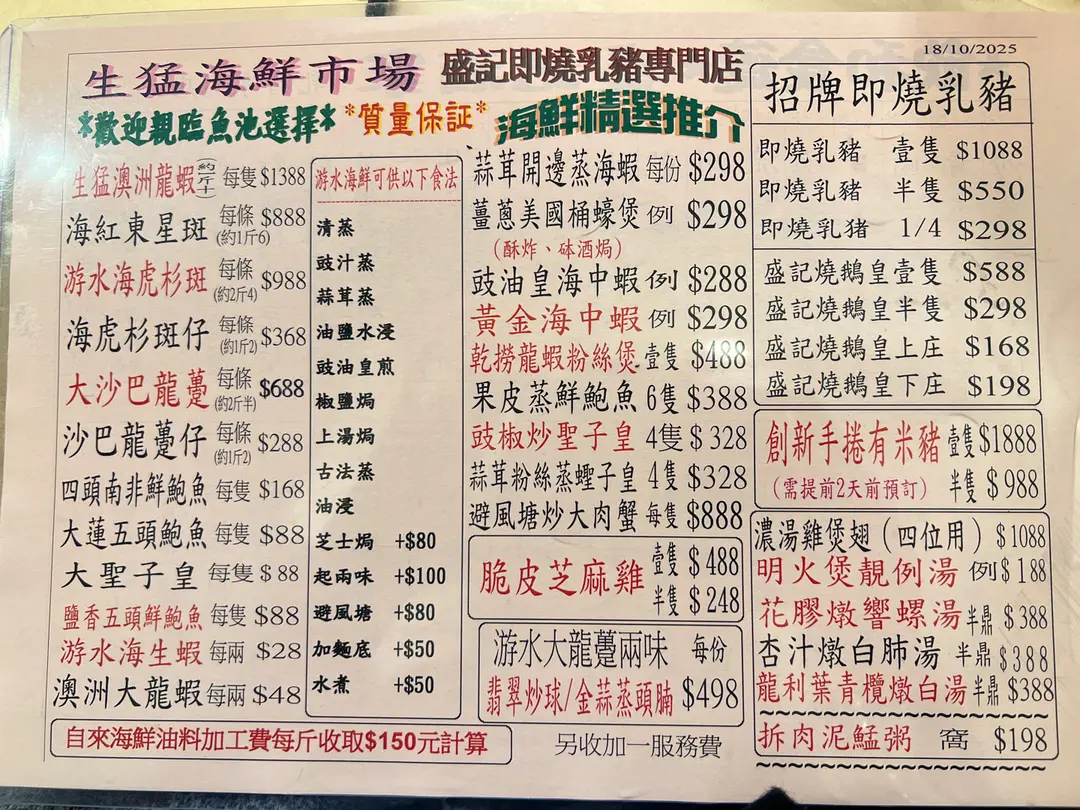 18/10/2025
生猛海鮮市場
盛記即燒乳豬專門店
*歡迎親臨魚池選擇*
*質量保証*
海鮮精選推介
生猛澳洲龍蝦(約斤半) 每隻 $1388
海紅東星斑 每條(約1斤6) $888
游水海虎杉斑 每條(約2斤4) $988
海虎杉斑仔 每條(約1斤2) $368
大沙巴龍躉 每條(約2斤半) $688
沙巴龍躉仔 每條(約1斤2) $288
四頭南非鮮鮑魚 每隻 $168
大蓮五頭鮑魚 每隻 $88
大聖子皇 每隻 $88
鹽香五頭鮮鮑魚 每隻 $88
游水海生蝦 每兩 $28
澳洲大龍蝦 每兩 $48
游水海鮮可供以下食法
清蒸
豉汁蒸
蒜茸蒸
油鹽水浸
豉油皇煎
椒鹽焗
上湯焗
古法蒸
油浸
芝士焗 +$80
起兩味 +$100
避風塘 +$80
加麵底 +$50
水煮 +$50
自來海鮮油料加工費每斤收取$150元計算
蒜茸開邊蒸海蝦 每份 $298
薑蔥美國桶蠔煲 例 $298
(酥炸、砵酒焗)
豉油皇海中蝦 例 $288
黃金海中蝦 例 $298
乾撈龍蝦粉絲煲 壹隻 $488
果皮蒸鮮鮑魚 6隻 $388
豉椒炒聖子皇 4隻 $328
蒜茸粉絲蒸蟶子皇 4隻 $328
避風塘炒大肉蟹 每隻 $888
脆皮芝麻雞
壹隻 $488
半隻 $248
游水大龍躉兩味 每份
翡翠炒球/金蒜蒸頭腩 $498
另收加一服務費
招牌即燒乳豬
即燒乳豬 壹隻 $1088
即燒乳豬 半隻 $550
即燒乳豬 1/4 $298
盛記燒鵝皇壹隻 $588
盛記燒鵝皇半隻 $298
盛記燒鵝皇上庄 $168
盛記燒鵝皇下庄 $198
創新手捲有米豬 壹隻 $1888
(需提前2天前預訂) 半隻 $988
濃湯雞煲翅(四位用) $1088
明火煲靚例湯 例 $188
花膠燉響螺湯 半鼎 $388
杏汁燉白肺湯 半鼎 $388
龍利葉青欖燉白湯 半鼎 $388
拆肉泥鯭粥 窩 $198